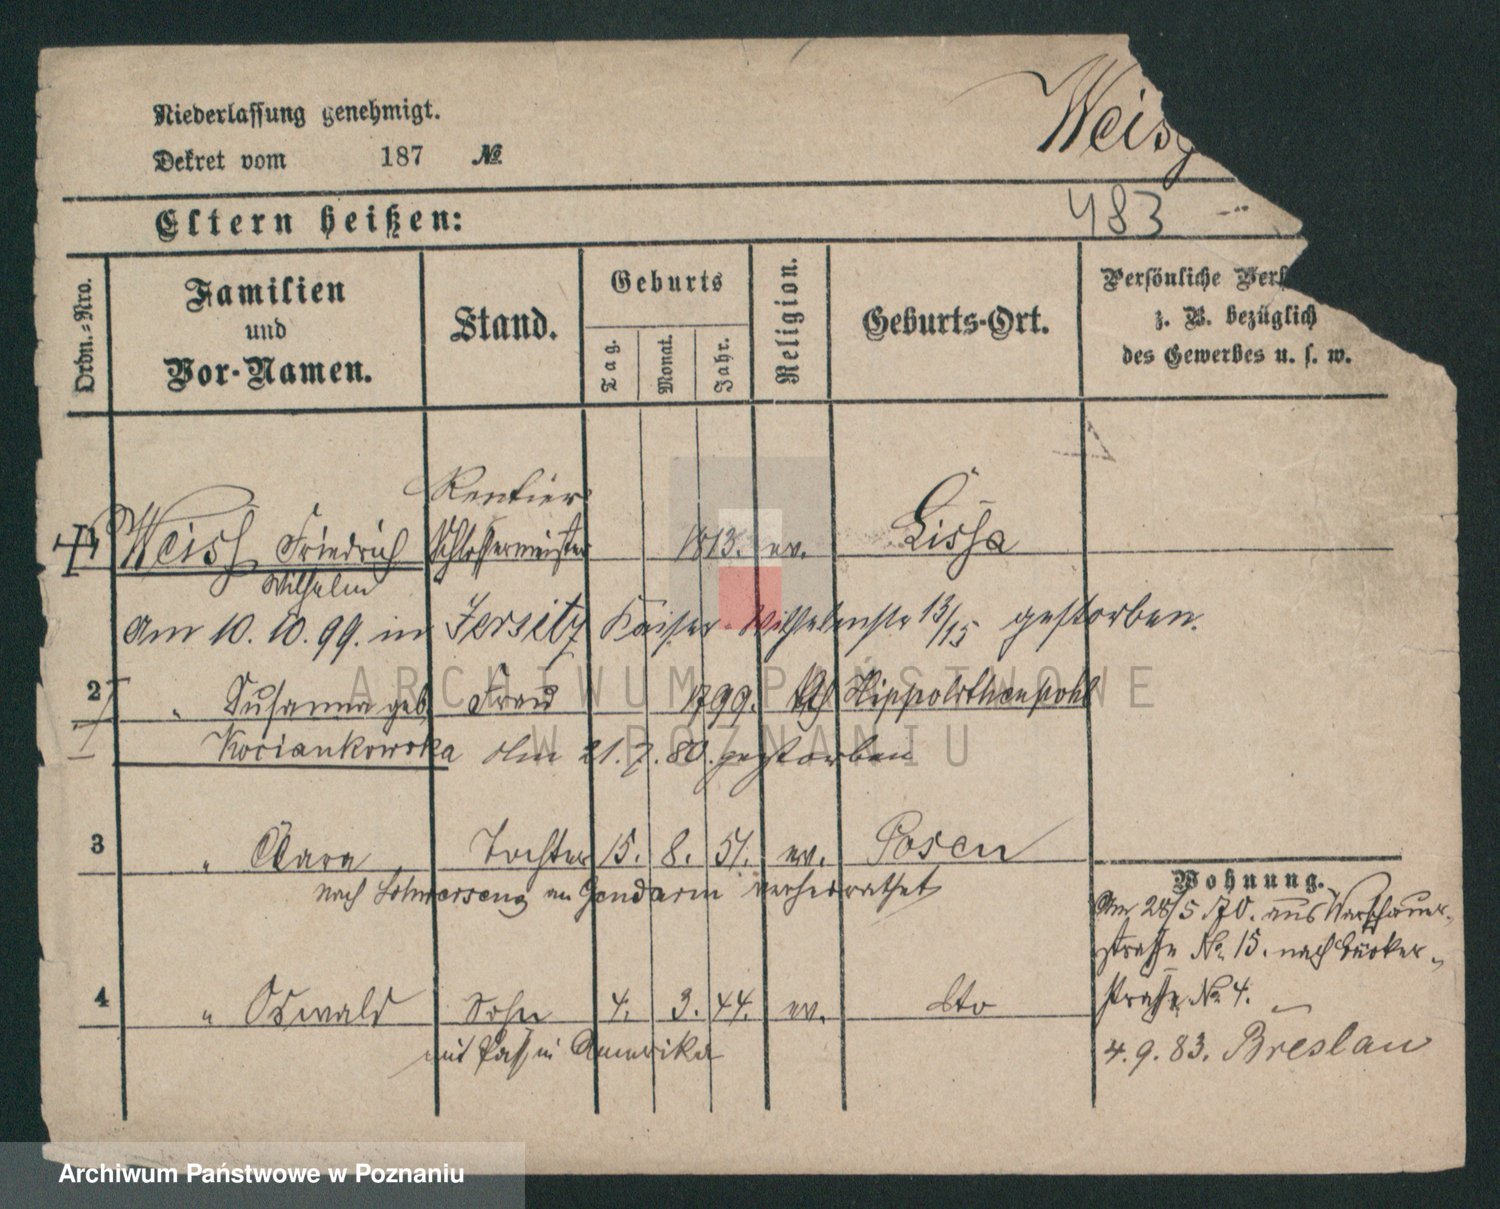 Weis
Niederlassung genehmigt.
Dekret vom 187 №
Eltern heißen:
483
Ordn.=Nro.
Familien
und
Vor-Namen.
Stand.
Geburts
Tag.
Monat.
Jahr.
Religion.
Geburts-Ort.
Persönliche
z. B. bezüglich
des Gewerbes u. s. w.
Rentier
Weiss, Friedrich Schlossermeister 1813. ev. Lissa
Wilhelm
Am 10. 10. 99. in Jersitz Kaiser Wilhelmstr 13/15 gestorben.
2 " Susanna geb Frau 1799.
Kociankowska Am 21. 7. 80. gestorben
3 " Clara Tochter 15. 8. 51. ev. Posen
nach an Gendarm verheirathet
4 " Oswald Sohn 4. 3. 44. ev. dto
mit Paß in Amerika
Wohnung.
Am 28/5 70. aus Warschauer-
strasse No. 15. nach
strasse No. 4.
4. 9. 83. Breslau
ARCHIWUM PAŃSTWOWE
W POZNANIU
Archiwum Państwowe w Poznaniu